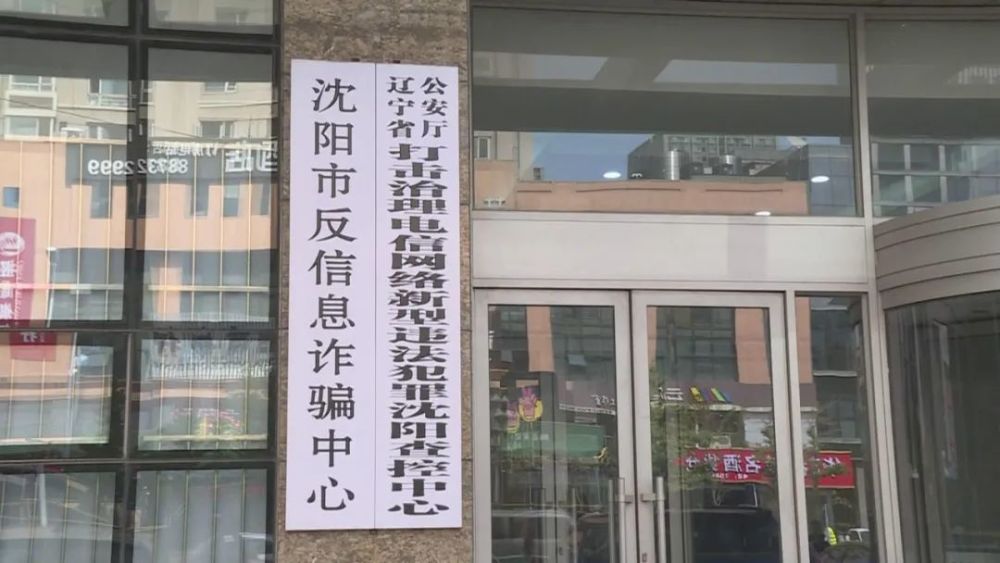 沈阳市反信息诈骗中心
辽宁省
公安厅
打击治理电信网络新型违法犯罪沈阳查控中心